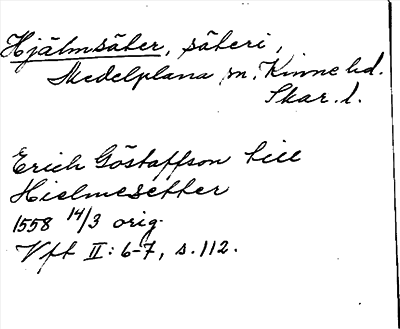 Hjälmsäter, säteri,
Medelplana sn, Kinne hd.
Skar. l.
Erich Göstaffson till
Hielmesetter
1558 14/3 orig.
Vft II: 6-7, s. 112.